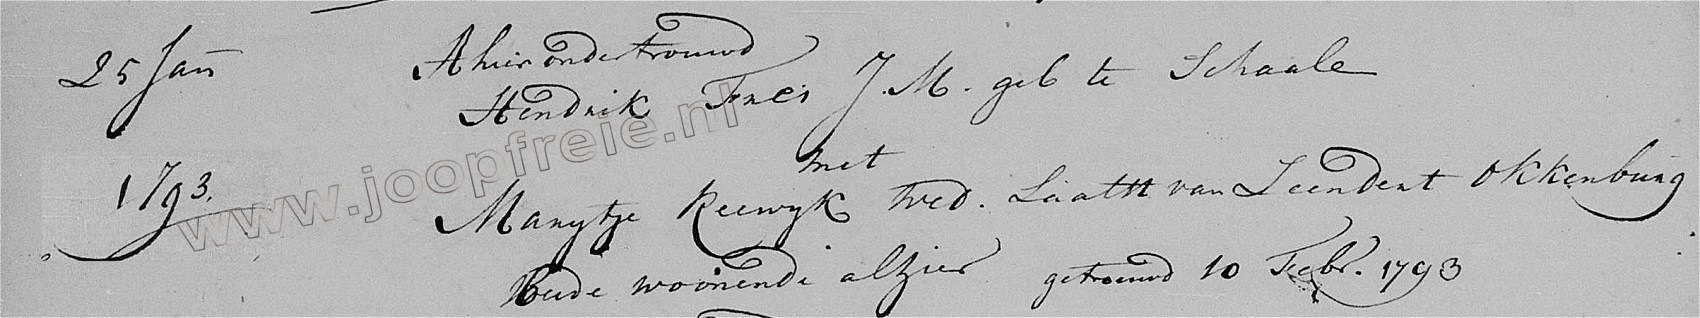 25 Jan Alhier ondertrouwd
Hendrik Freij J.M. geb te Schaale
1793. met
Marijtje Reewijk Wed. Laatst van Leendert Okkenburg
beide woonende alhier getrouwd 10 Febr. 1793
www.joopfreie.nl